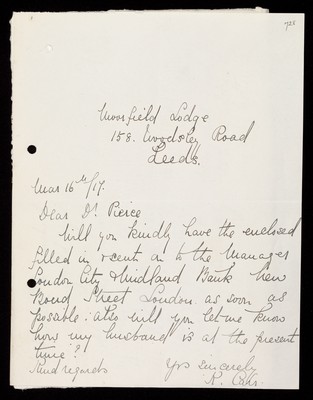 Moorfield Lodge
158. Woodsley Road
Leeds.
Mar 16th/17.
Dear Dr. Pierce
Will you kindly have the enclosed
filled in & sent on to the Manager
London City & Midland Bank New
Bond Street London. as soon as
possible: also will you let me know
how my husband is at the present
time?
Kind regards
Yrs sincerely
K.